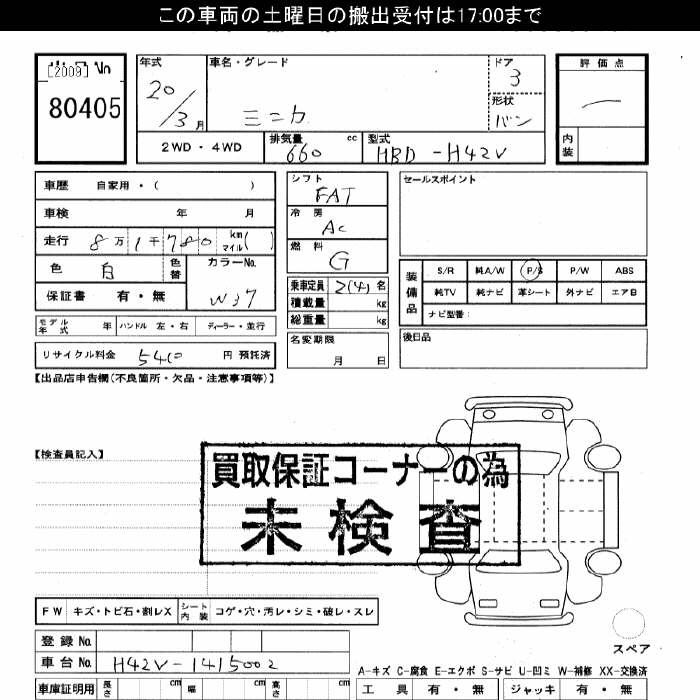 この車両の土曜日の搬出受付は17:00まで
[2009] No
80405
年式
20/3月
車名・グレード
ミニカ
ドア
3
形状
バン
評価点
内装
2WD・4WD
排気量 660 cc
型式 HBD-H42V
車歴 自家用・( )
車検 年 月
走行 8万1千780 km マイル( )
色 白 色替
カラーNo. W37
保証書 有・無
モデル年式 年 ハンドル 左・右 ディーラー・並行
リサイクル料金 5410 円 預託済
シフト
FAT
冷房
AC
燃料
G
乗車定員 2(4)名
積載量 kg
総重量 kg
名変期限
月 日
セールスポイント
装備品
S/R 純A/W P/S P/W ABS
純TV 純ナビ 革シート 外ナビ エアB
ナビ型番:
後日品
【出品店申告欄(不良箇所・欠品・注意事項等)】
【検査員記入】
買取保証コーナーの為
未検査
FW キズ・トビ石・割レX シート内装 コゲ・穴・汚レ・シミ・破レ・スレ
登録No.
車台No. H42V-1415002
車庫証明用 長さ cm 幅 cm 高さ cm
スペア
A-キズ C-腐食 E-エクボ S-サビ U-凹ミ W-補修 XX-交換済
工具 有・無 ジャッキ 有・無